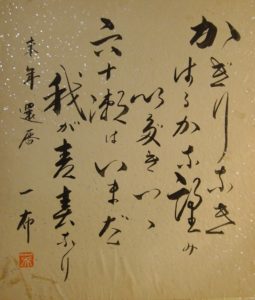 かぎりなき
はるかな望み
いだきつゝ
六十瀬はいまだ
我が青春なり
還暦 一布